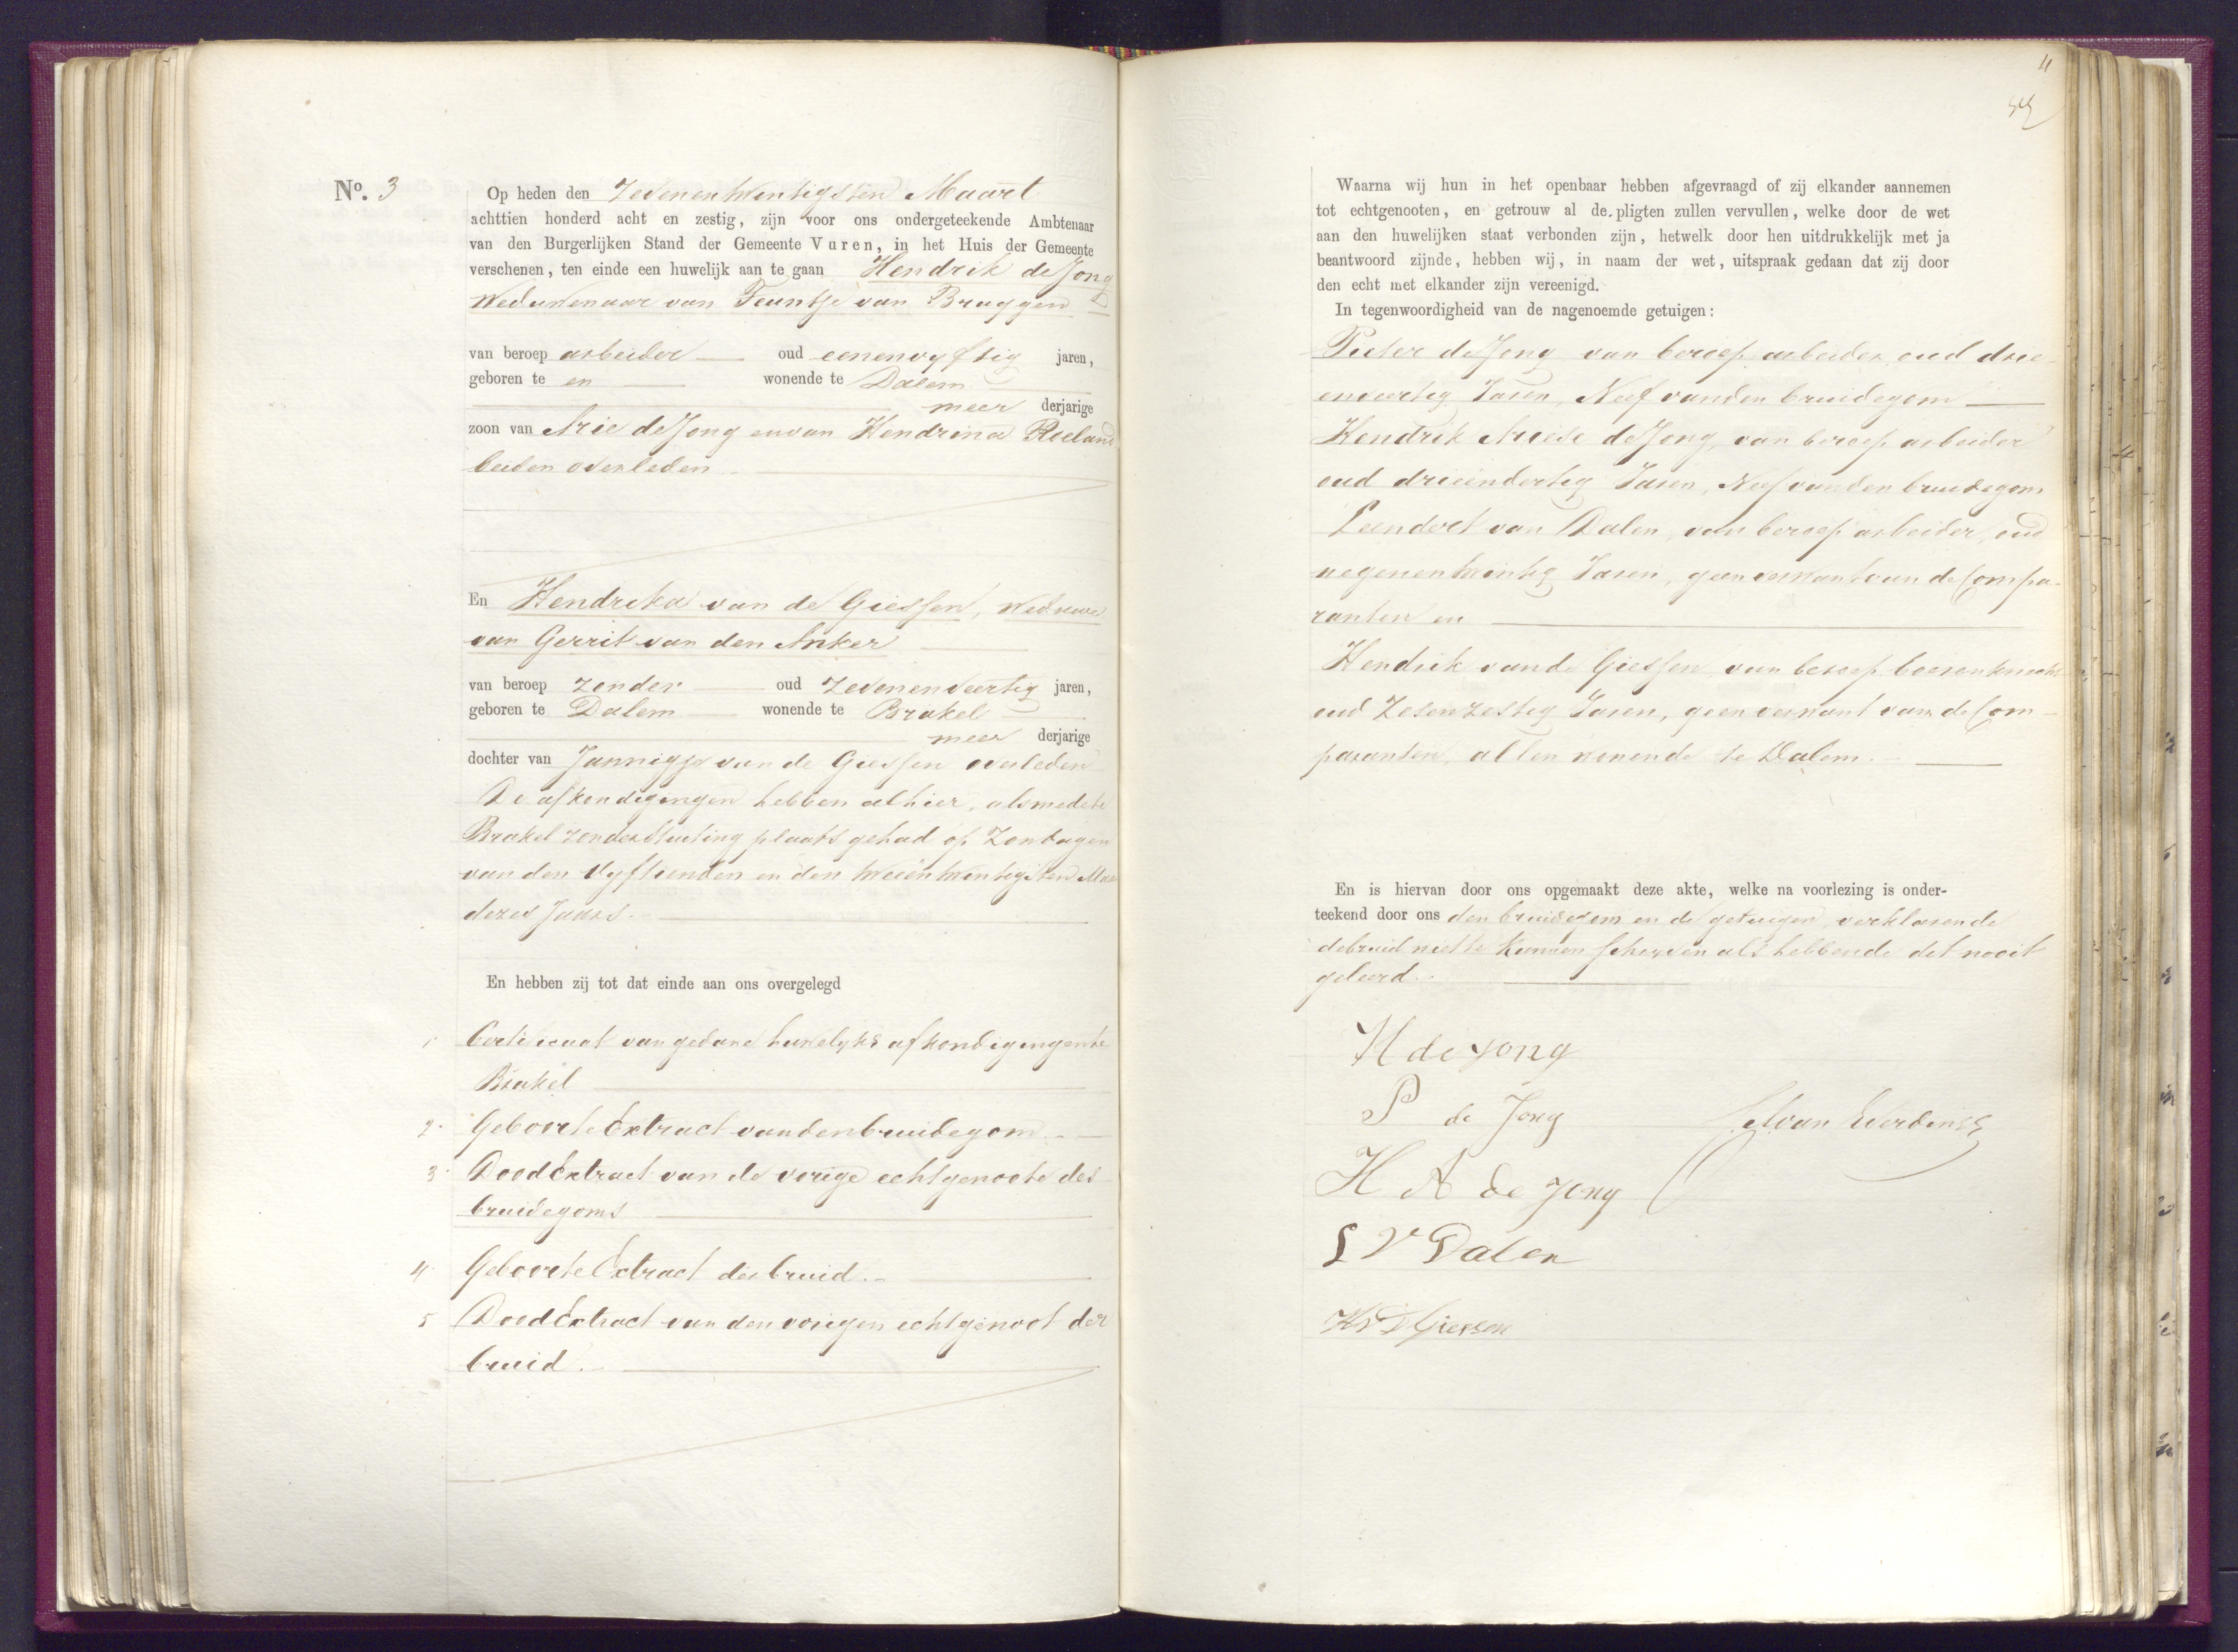 No. 3
Op heden den Zevenentwintigsten Maart
achttien honderd acht en zestig, zijn voor ons ondergeteekende Ambtenaar
van den Burgerlijken Stand der Gemeente Vuren, in het Huis der Gemeente
verschenen, ten einde een huwelijk aan te gaan Hendrik de Jong
Weduwenaar van Teuntje van Bruggen
van beroep arbeider oud eenenvyftig jaren,
geboren te en wonende te Dalem
meer derjarige
zoon van Arie de Jong en van Hendrina
beiden overleden
En Hendrika van de Giessen, Weduwe
van Gerrit van den Anker
van beroep zonder oud Zevenenveertig jaren,
geboren te Dalem wonende te Brakel
meer derjarige
dochter van Jannigje van de Giessen overleden
De afkondigingen hebben alhier, alsmede te
Brakel zonder stuiting plaats gehad op Zondagen
van den Vyftienden en den tweeëntwintigsten
dezes Jaars.
En hebben zij tot dat einde aan ons overgelegd
1 Certificaat van gedane huwelyks afkondigingen te
Brakel
2. Geboorte Extract van den bruidegom
3 Dood Extract van de vorige echtgenoote des
bruidegoms
4 Geboorte Extract der bruid.
5 Dood Extract van den vorigen echtgenoot der
bruid.
11
Waarna wij hun in het openbaar hebben afgevraagd of zij elkander aannemen
tot echtgenooten, en getrouw al de pligten zullen vervullen, welke door de wet
aan den huwelijken staat verbonden zijn, hetwelk door hen uitdrukkelijk met ja
beantwoord zijnde, hebben wij, in naam der wet, uitspraak gedaan dat zij door
den echt met elkander zijn vereenigd.
In tegenwoordigheid van de nagenoemde getuigen:
Pieter de Jong van beroep arbeider oud drie
enveertig Jaren, Neef van den bruidegom
Hendrik Ariese de Jong, van beroep arbeider
oud drieëndertig Jaren, Neef van den bruidegom
Leendert van Dalen, van beroep arbeider, oud
negenentwintig Jaren, geen verwant van de Compa-
ranten en
Hendrik van de Giessen van beroep boerenknecht
oud Zesenzestig Jaren, geen verwant van de Com-
paranten, allen wonende te Dalem.
En is hiervan door ons opgemaakt deze akte, welke na voorlezing is onder-
teekend door ons den bruidegom en de getuigen, verklarende
de bruid niet te kunnen schryven als hebbende dit nooit
geleerd.
H de Jong
P de Jong
H A de Jong
L V Dalen
H V D Giessen